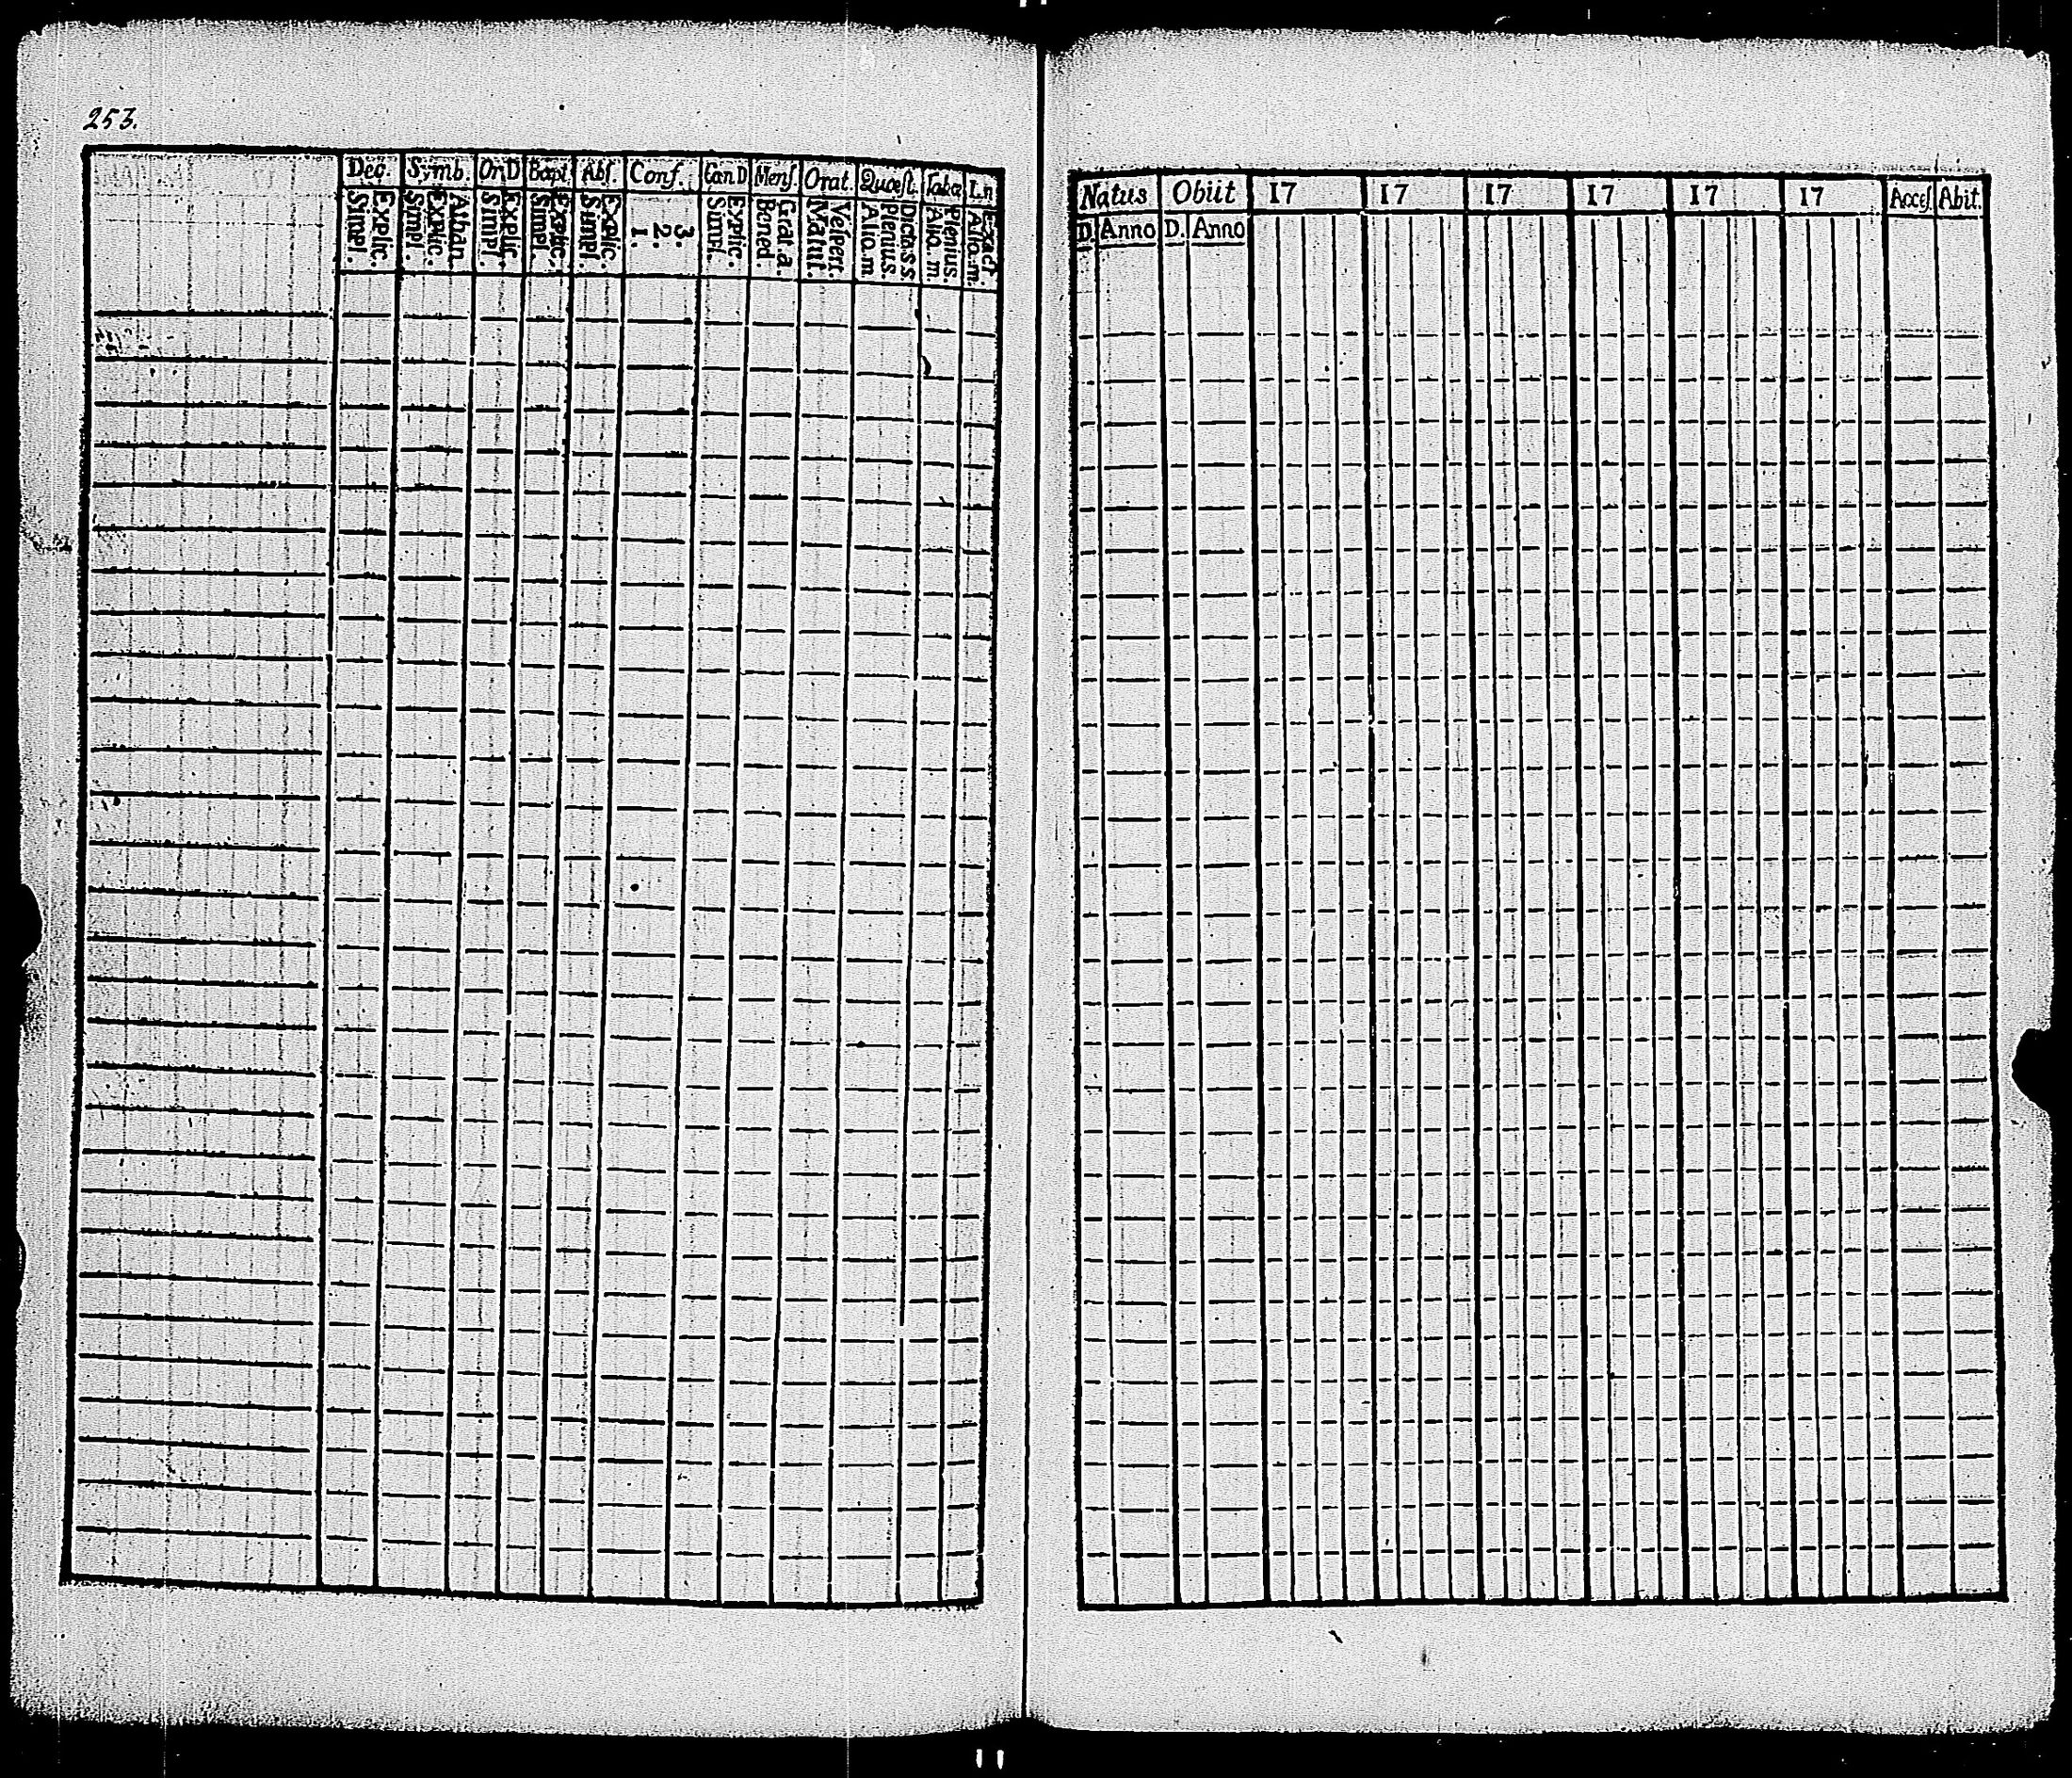 253.
Dec. Symb. Or.D Bapt. Abſ. Conf. Cœn D Menſ. Orat. Quæſt. Taba L.n
Explic. Simpl.
Athan. Explic. Simpl.
Explic. Simpl.
Explic. Simpl.
Explic. Simpl.
3. 2. 1.
Explic. Simpl.
Grat. a. Bened.
Veſpert. Matut.
Dicta ss Plenius. Alio. m
Plenius. Alio. m.
Exact Alio. m.
Natus Obiit 17 17 17 17 17 17 Acceſ. Abit.
D Anno D. Anno